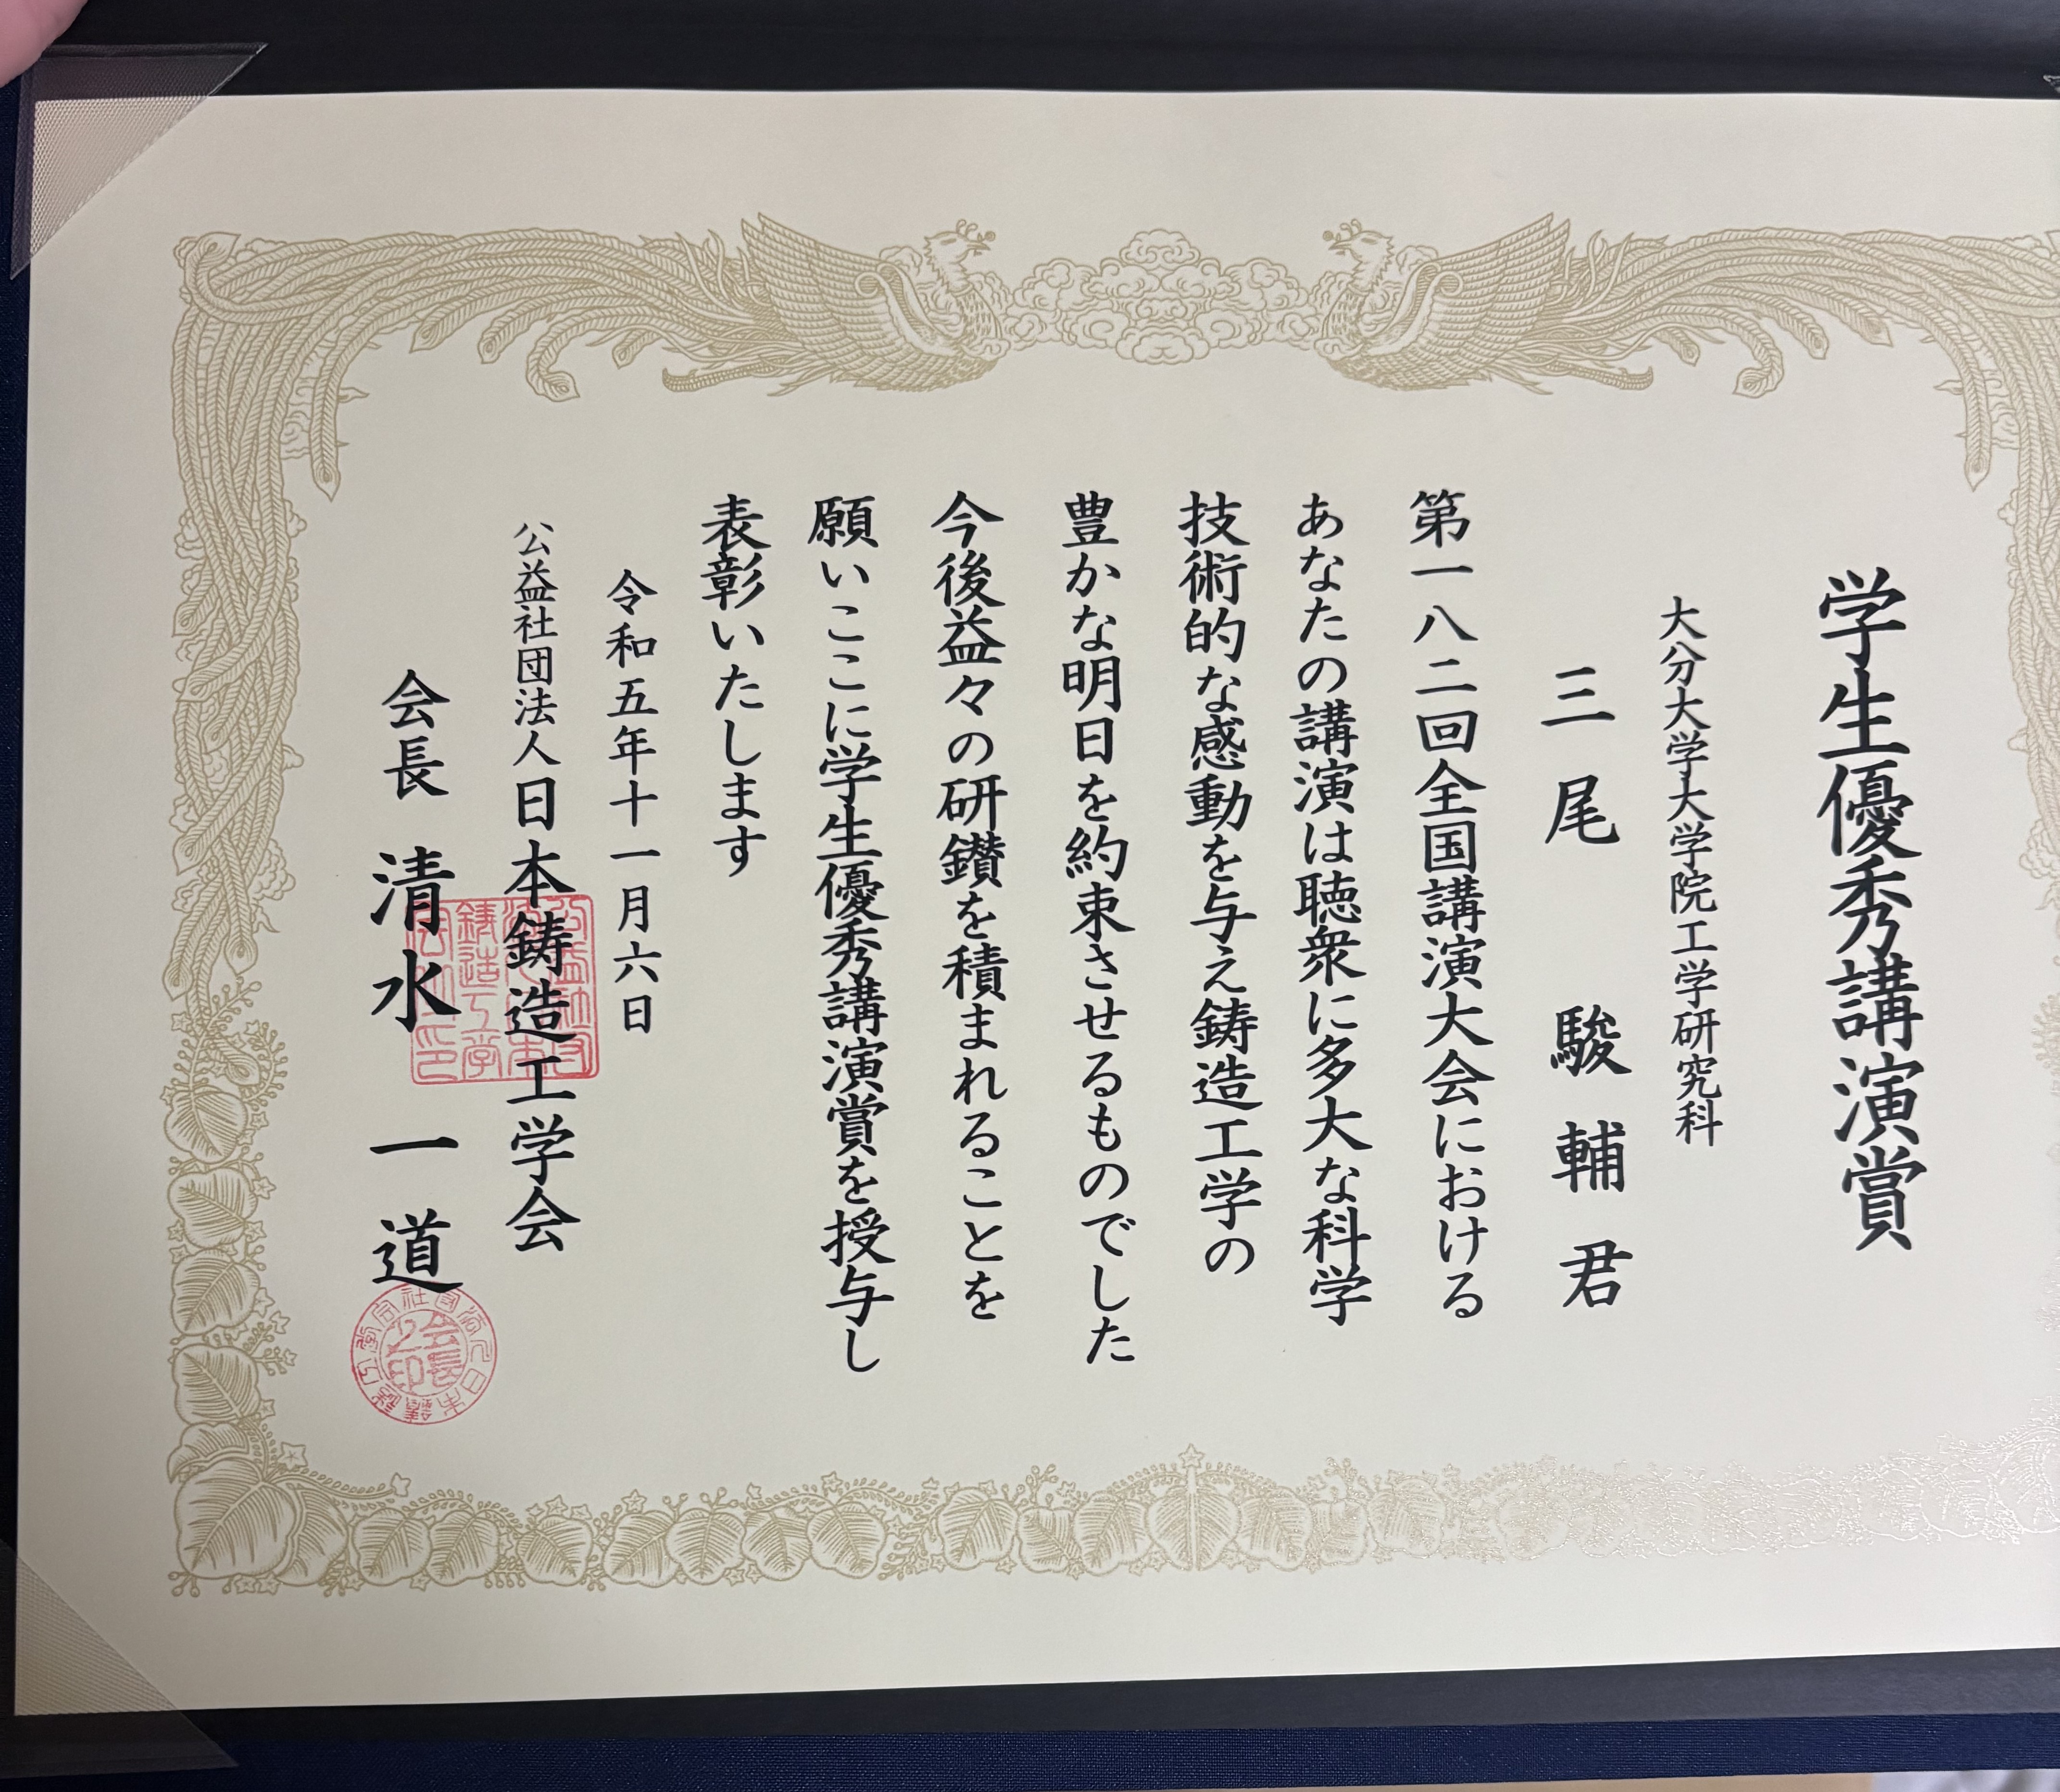 学生優秀講演賞
大分大学大学院工学研究科
三尾 駿輔君
第一八二回全国講演大会における
あなたの講演は聴衆に多大な科学
技術的な感動を与え鋳造工学の
豊かな明日を約束させるものでした
今後益々の研鑽を積まれることを
願いここに学生優秀講演賞を授与し
表彰いたします
令和五年十一月六日
公益社団法人日本鋳造工学会
会長 清水一道